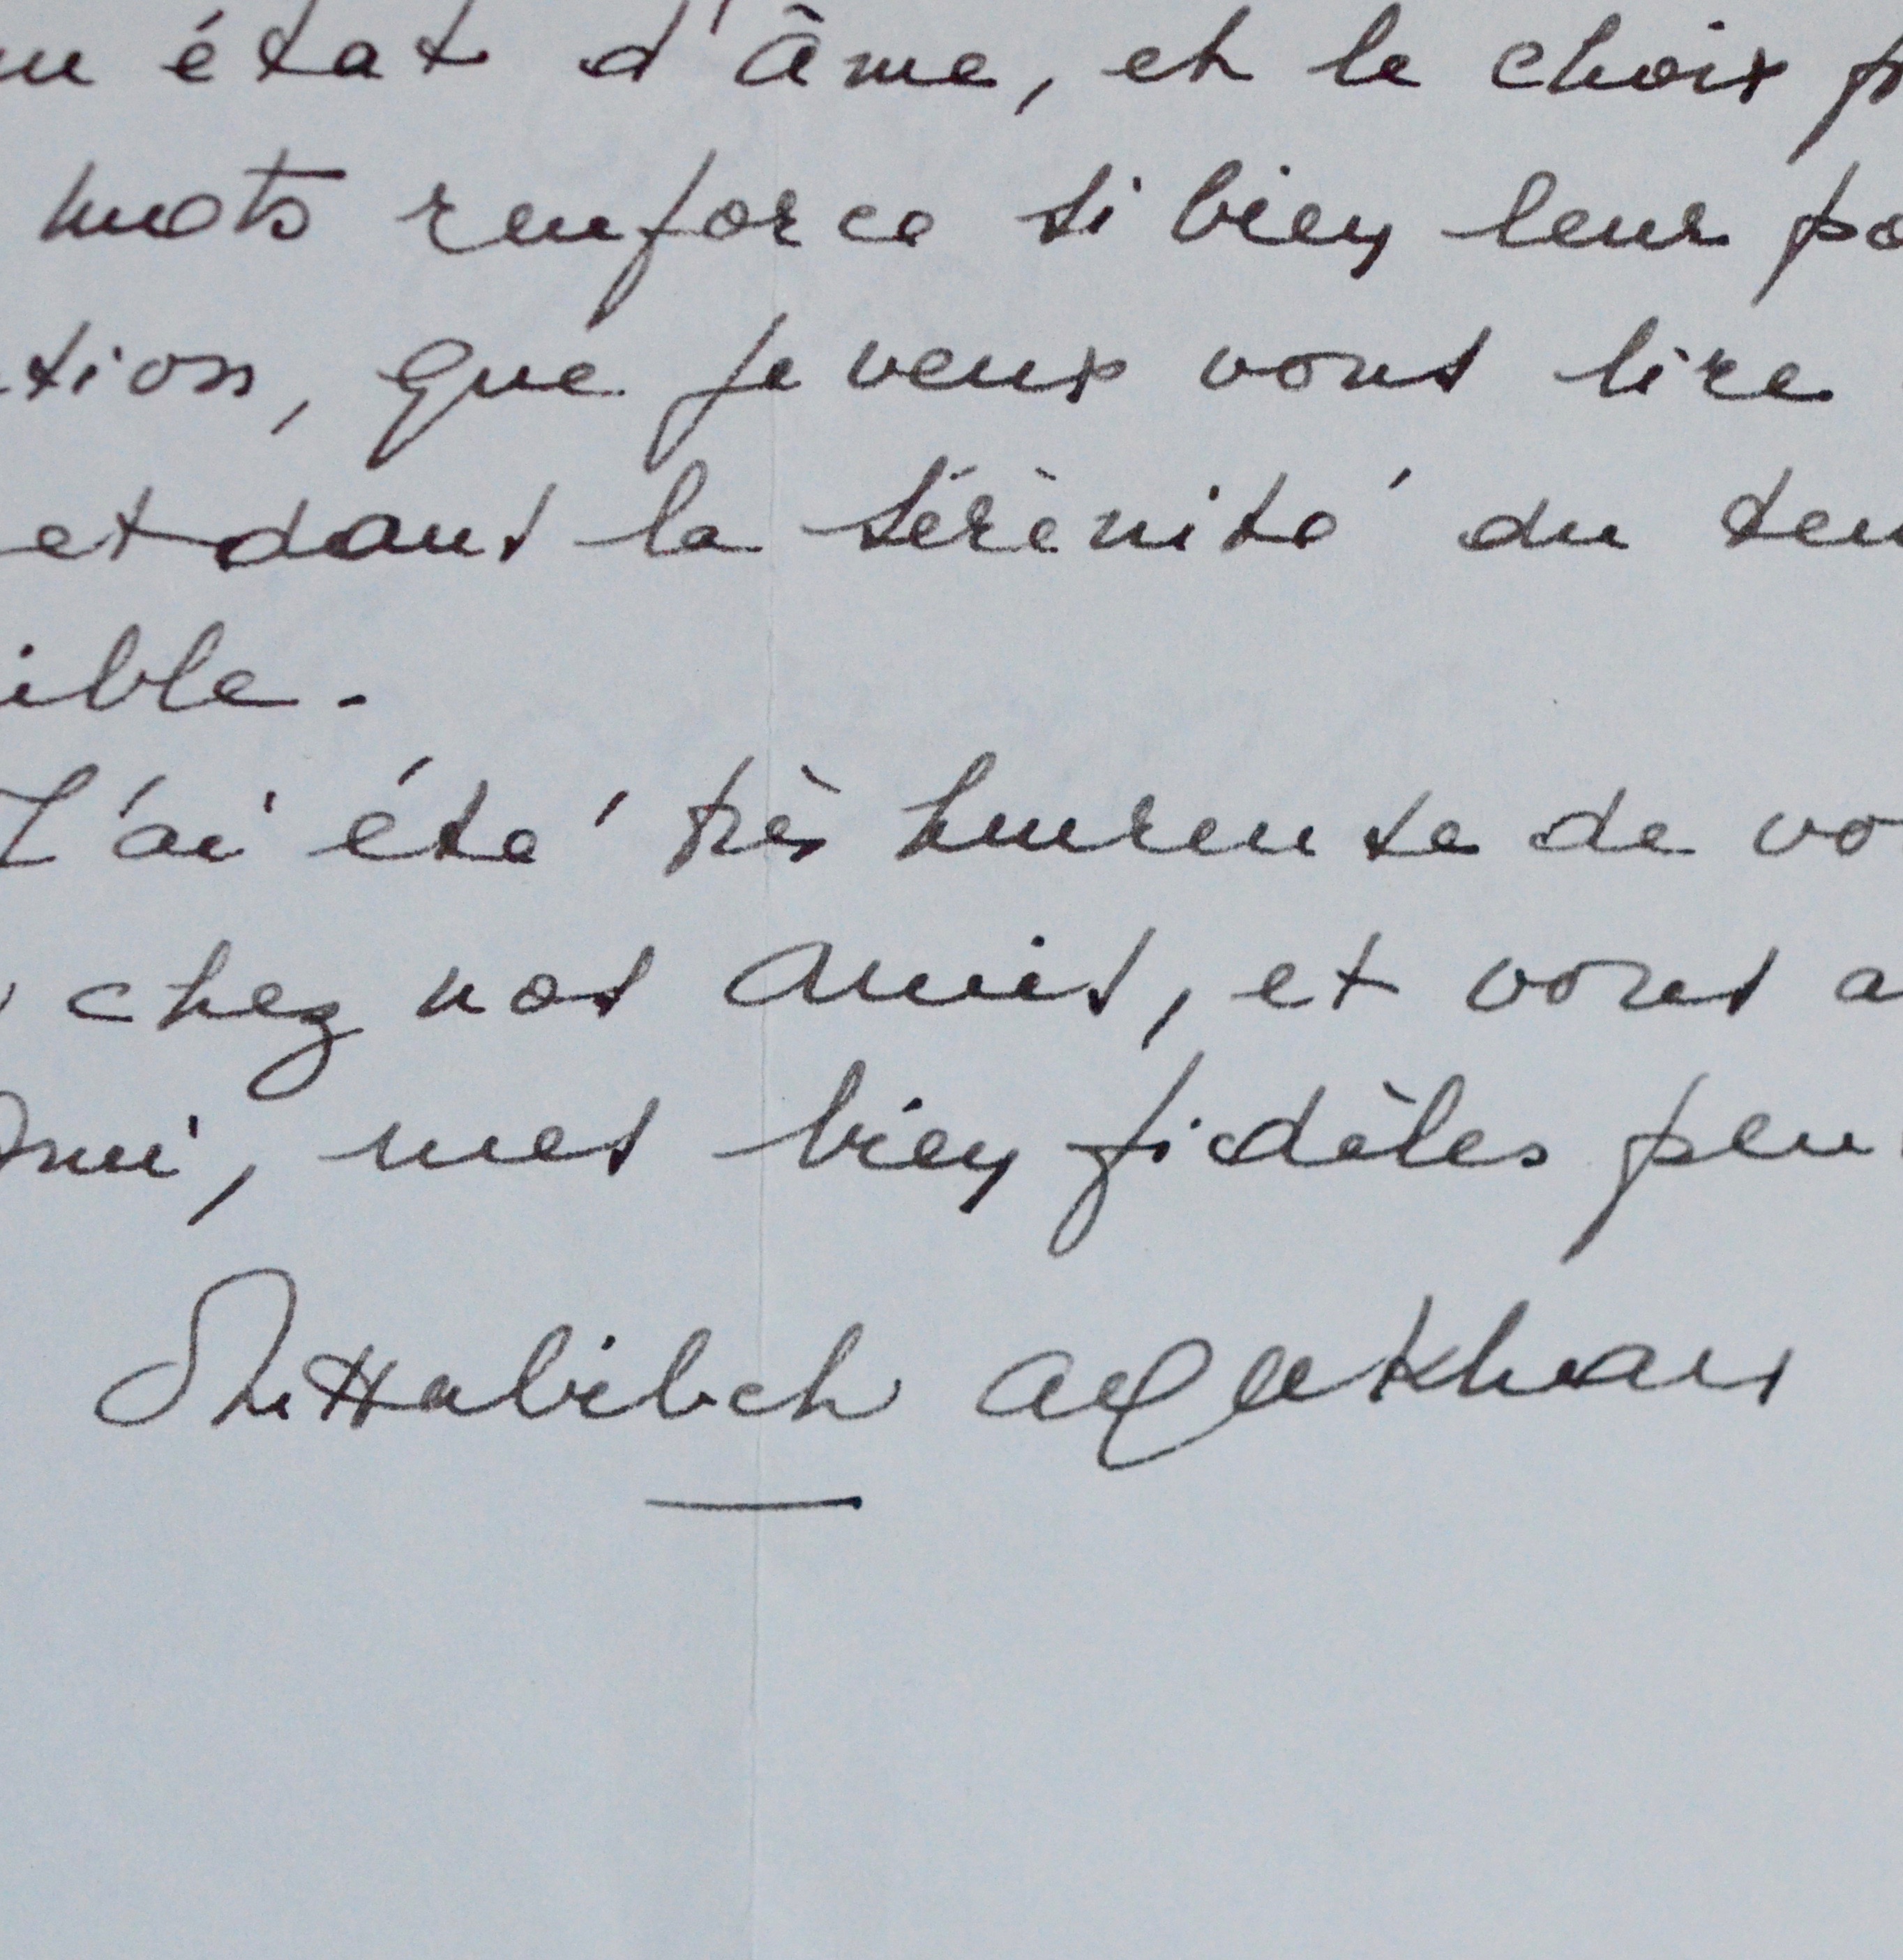 u état d'âme, et le choix p
mots renforce si bien leur po
tion, que je veux vous lire
et dans la sérènité du ten
ible.
J'ai été très heureuse de vo
chez nos amis, et vous a
Ami, mes bien fidèles pen
Om Habibeh Aga Khan